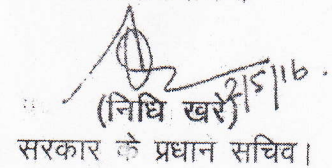 2/5/16.
(निधि खरे)
सरकार के प्रधान सचिव।